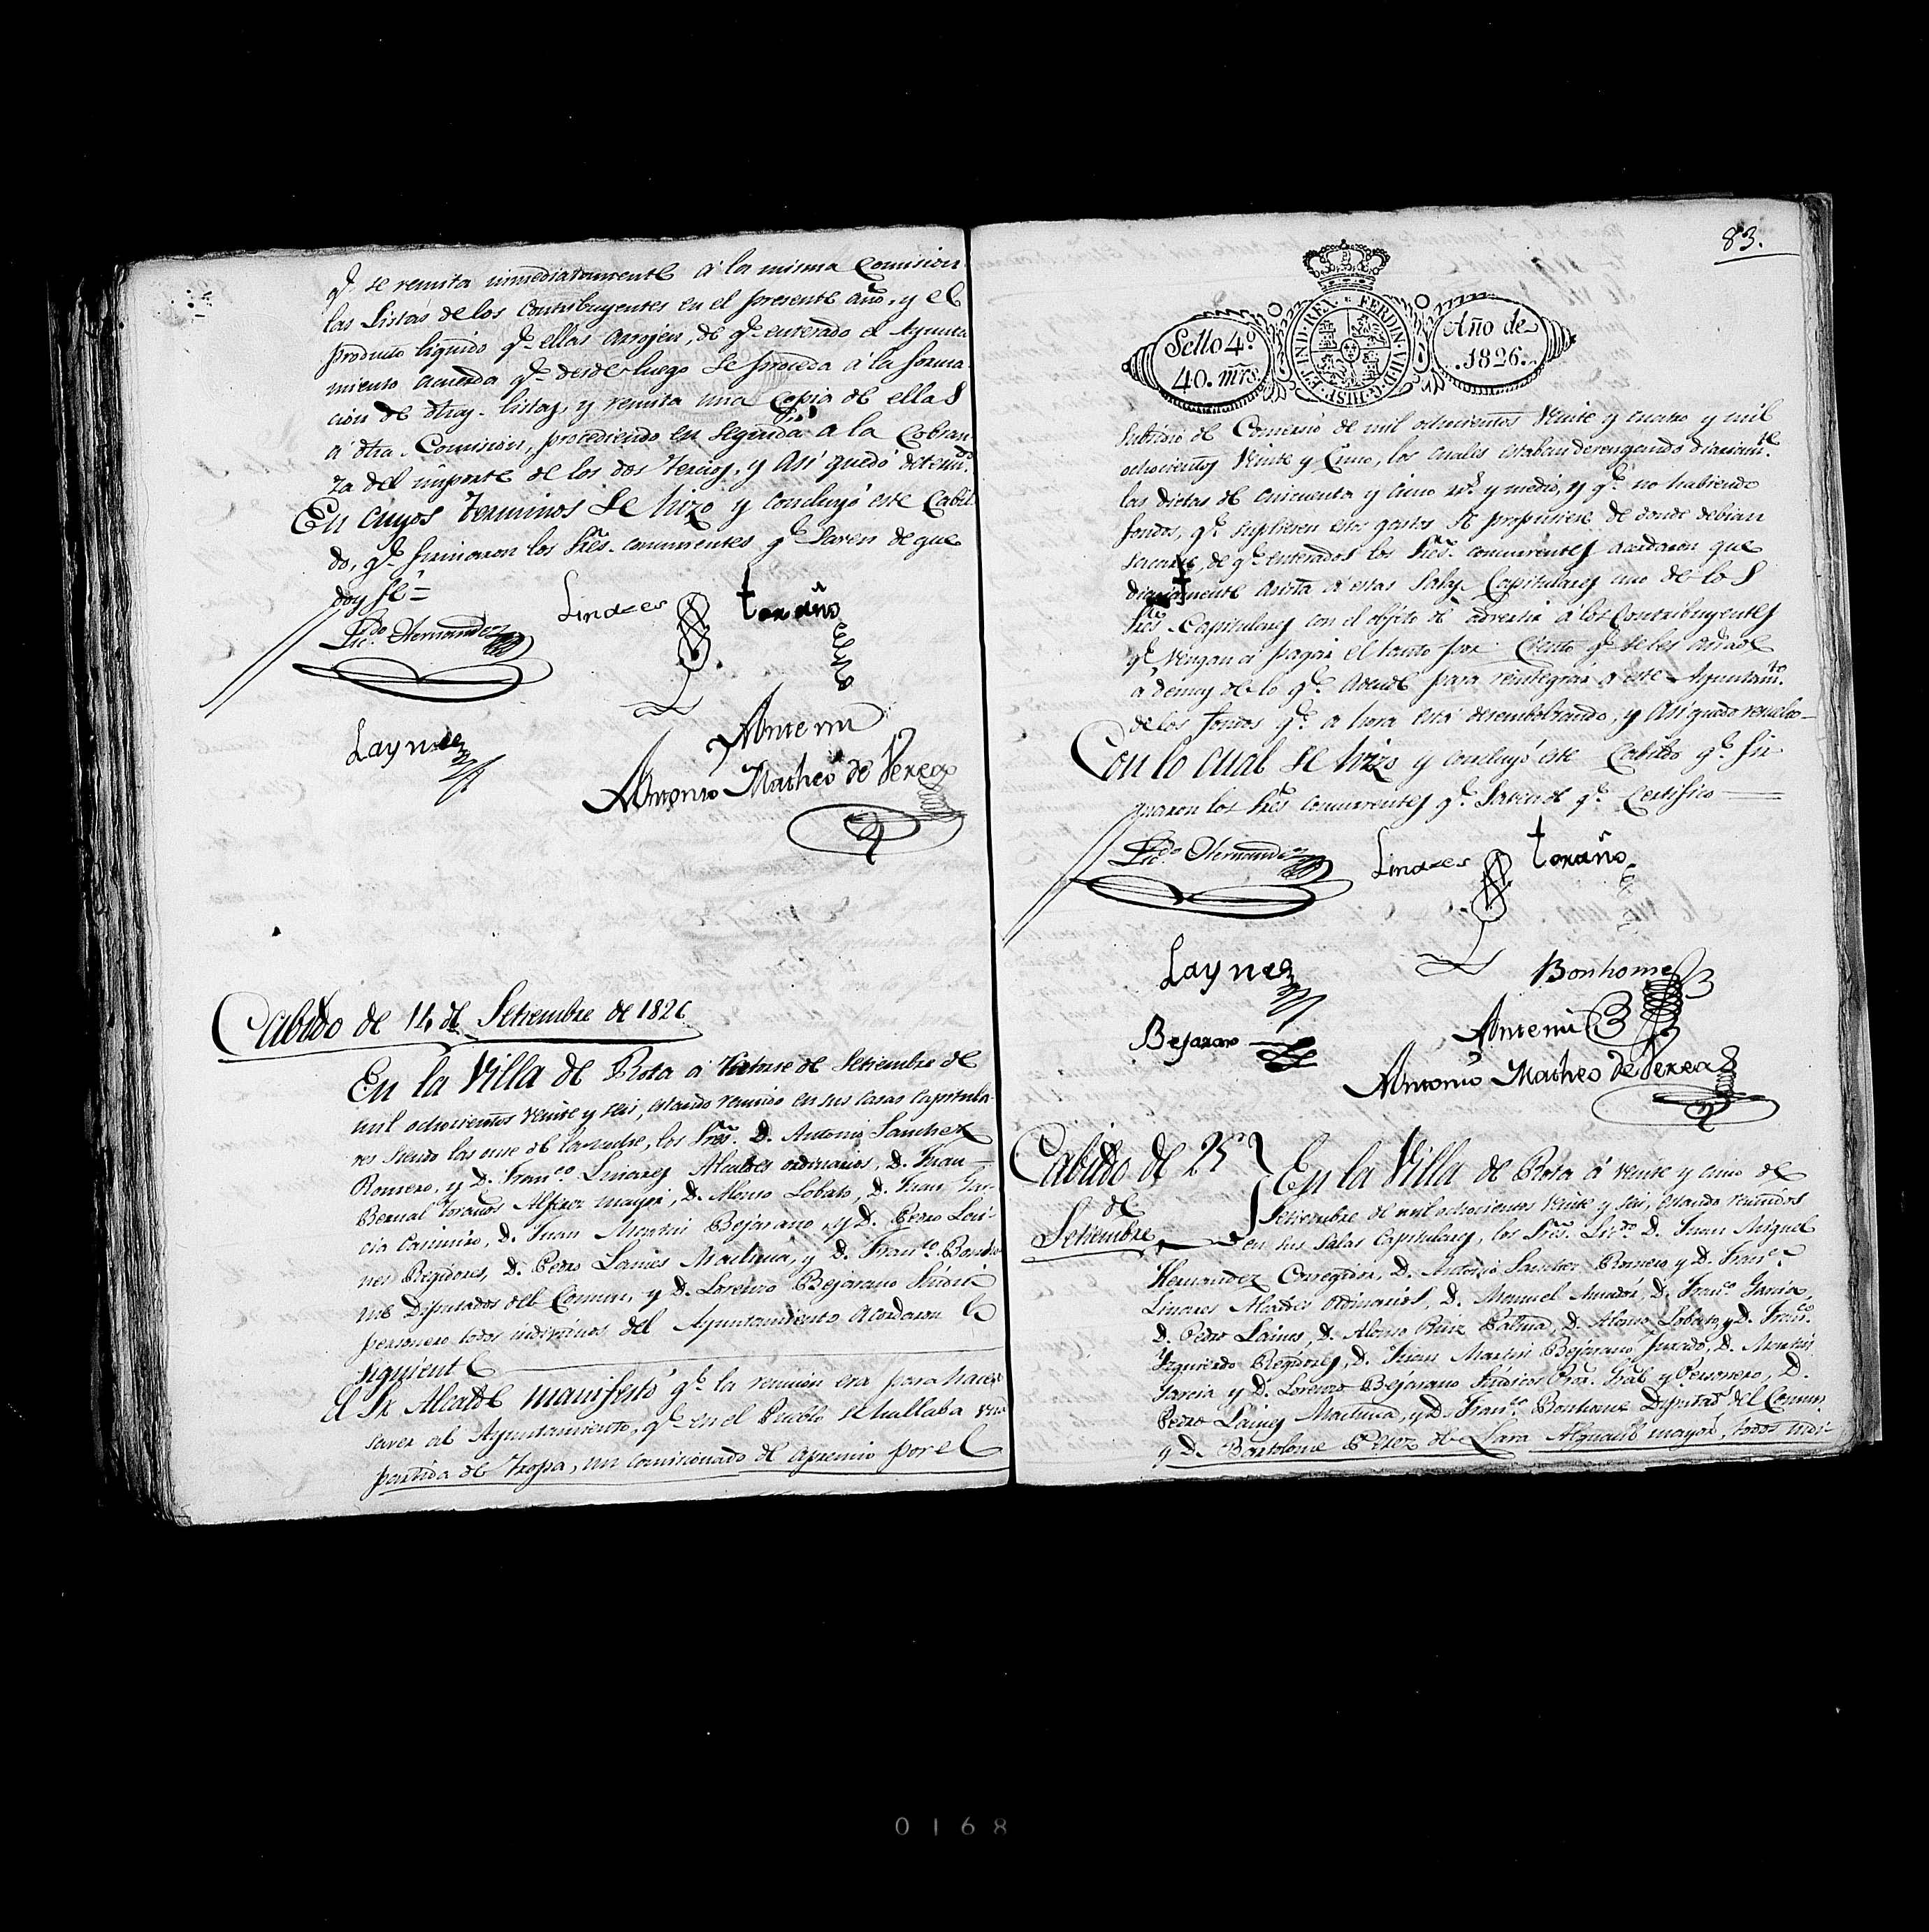 q.e se remita inmediatamente á la misma Comision
las Listas de los Contribuyentes en el presente año, y el
producto liquido q.e ellas arrojen, de q.e enterado el Ayunta
miento acuerda q.e desde luego se proceda á la forma
cion de dhas. listas, y remita una copia de ellas
á dha. Comision, procediendo en seguida á la Cobran
za del importe de los dos tercios, y Así quedó determ.do
En cuyos terminos se hizo y concluyó este Cabil
do, q.e firmaron los Sres. concurrentes q.e saven de que
doy fé =
Lic.do Hernandez
Linares
toraño
Laynez
Antemi
Antonio Matheo de Perea
Cabildo de 14 de Setiembre de 1826
En la Villa de Rota á catorce de Setiembre de
mil ochocientos veinte y seis, estando reunido en sus casas capitula
res siendo las once de la noche, los Sres. D. Antonio Sanchez
Romero, y D. Fran.co Linares Alcaldes ordinarios, D. Juan
Bernal toraño Alferez mayor, D. Alonso Lobato, D. Juan Gar
cia Casimiro, D. Juan Martin Bejarano, y D. Pedro
Regidores, D. Pedro Laines Martinez, y D. Fran.co Bonho
me Diputados del Comun, y D. Lorenzo Bejarano Sindico
personero todos individuos del Ayuntamiento Acordaron lo
siguiente
El Sr Alcalde manifestó q.e la reunion era para hacer
saver al Ayuntamiento, q.e en el Pueblo se hallaba una
partida de tropa, un comisionado de apremio por el
83.
Sello 4.º
40. mrs.
FERDIN. VII. D. G. HISP. ET IND. REX.
Año de
1826.
Subsidio de Comercio de mil ochocientos veinte y cuatro y mil
ochocientos veinte y cinco, los cuales estaban devengando diariam.te
las dietas de cincuenta y cinco r.s y medio, y q.e no habiendo
fondos, q.e supliesen estos gastos se propusiese de donde debian
sacarse, de q.e enterados los Sres. concurrentes acordaron que
diariamente asista á estas Salas Capitulares uno de los
Sres. Capitulares con el objeto de advertir á los Contribuyentes
q.e vengan á pagar el tanto por Ciento q.e se les añade
á demas de lo q.e adeude para reintegrar á este Ayuntam.to
de los fondos q.e ahora está desembolsando, y Así quedo resuelto
Con lo cual se hizo y concluyó este Cabildo q.e fir
maron los Sres concurrentes q.e saben de q.e Certifico
Lic.do Hernandez
Linares
toraño
Laynez
Bonhome
Bejarano
Antemi
Antonio Matheo de Perea
Cabildo de 25
de
Setiembre
En la Villa de Rota á veinte y cinco de
Setiembre de mil ochocientos veinte y seis, estando reunidos
en sus Salas Capitulares, los Sres. Lic.do D. Juan Miguel
Hernandez Corregidor, D. Antonio Sanchez Romero y D. Fran.co
Linares Alcaldes ordinarios, D. Manuel Amador, D. Fran.co Garcia,
D. Pedro Laines, D. Alonso Ruiz Palma, D. Alonso Lobato, y D. Fran.co
Izquierdo Regidores, D. Juan Martin Bejarano Jurado, D. Martin
Garcia y D. Lorenzo Bejarano Sindicos Pror. Gral y Personero, D.
Pedro Laines Martinez, y D. Fran.co Bonhome Diputad.s del Comun
y D. Bartolome Perez de Lara Alguacil mayor, todos indi
0168